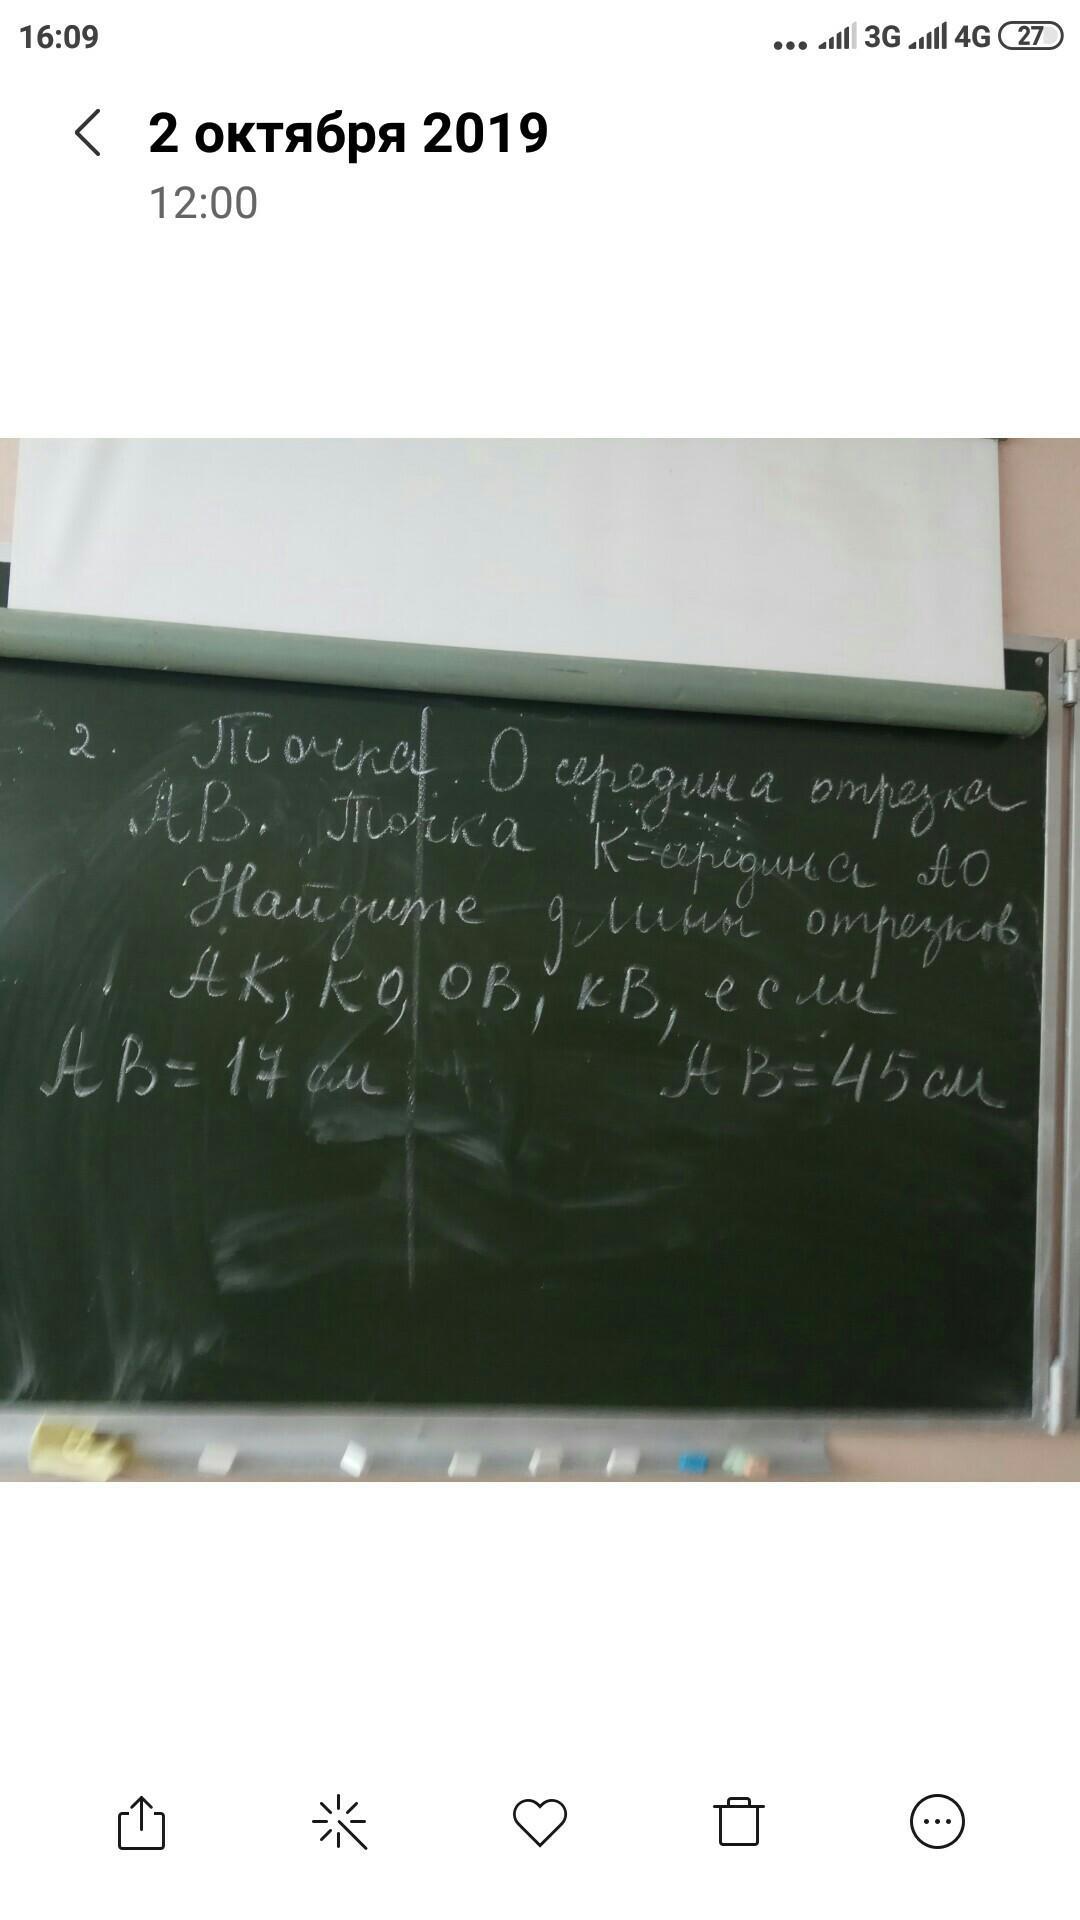 16:09
... 3G 4G 27
2 октября 2019
12:00
2. Точка О середина отрезка
АВ. Точка К-середина АО
Найдите длины отрезков
АК, КО, ОВ, КВ, если
АВ=17 см АВ=45см